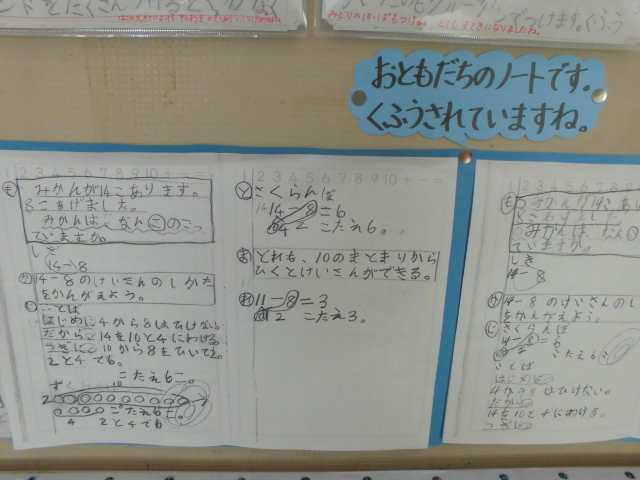 おともだちのノートです。
くふうされていますね。
1 2 3 4 5 6 7 8 9 10 + − =
も
みかんが14こあります。
8こあげました。
みかんは、なんこのこっ
ていますか。
しき
14−8
か
14−8のけいさんのしかた
をかんがえよう。
じ
ことば
はじめに 4から8はひけない
だから 14を10と4にわける
つぎに 10から8をひいて2
2と4で6
こたえ6こ。
ず
10
2
こたえ6こ。
4 2と4で6
1 2 3 4 5 6 7 8 9 10 + − =
と
さくらんぼ
14−8=6
10 4 2 こたえ6。
ま
どれも、10のまとまりから
ひくとけいさんができる。
れ
11−8=3
10 1 2 こたえ3。
1 2 3 4 5 6 7 8 9 10 + − =
も
みかんが14こあり
8こあげました
みかんは、なんこ
ていますか。
しき
14−8
か
14−8のけいさんのし
をかんがえよう。
じ
さくらんぼ
14−8=6
こたえ6こ
ことば
はじめに
4から8はひけない。
だから
14を10と4にわける。
つぎに